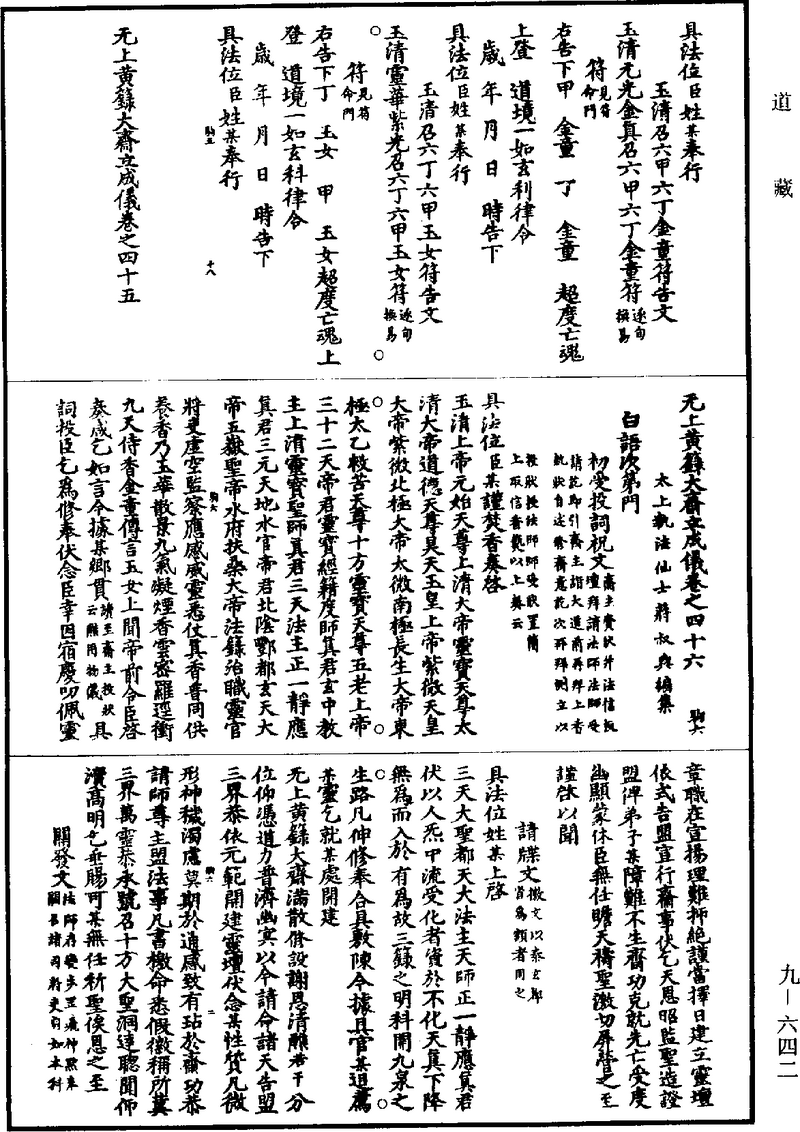 道藏
具法位臣姓某奉行
玉清召六甲六丁金童符告文
玉清元光金真召六甲六丁金童符逐旬換易
符見符命門
右告下甲　金童　丁　金童　超度亡魂
上登　道境一如玄科律令
歲　年　月　日　時告下
具法位臣姓某奉行
玉清召六丁六甲玉女符告文
玉清靈華紫光召六丁六甲玉女符逐旬換易
符見符命門
右告下丁　玉女　甲　玉女超度亡魂上
登　道境一如玄科律令
歲　年　月　日　時告下
具法位臣姓某奉行
无上黃籙大齋立成儀卷之四十五
无上黃籙大齋立成儀卷之四十六
太上執法仙士蔣叔輿編集
白語次第門
初受投詞祝文
具法位臣某謹焚香奏啓
玉清上帝元始天尊上清大帝靈寶天尊太
清大帝道德天尊昊天玉皇上帝紫微天皇
大帝紫微北極大帝太微南極長生大帝東
極太乙救苦天尊十方靈寶天尊五老上帝
三十二天帝君靈寶經籍度師真君玄中教
主上清靈寶聖師真君三天法主正一靜應
真君三元天地水官帝君北陰酆都玄天大
帝五嶽聖帝水府扶桑大帝法籙治職靈官
將吏虛空監察應感威靈悉仗真香普同供
養香乃玉華散景九氣凝煙香雲密羅逕衝
九天侍香金童傳言玉女上聞帝前令臣啓
奏咸乞如言今據某鄉貫具
詞投臣乞為修奉伏念臣幸因宿慶叨佩靈
章職在宣揚理難抑絕謹當擇日建立靈壇
依式告盟宣行齋事伏乞天恩昭監聖造證
盟俾弟子某障難不生齋功克就先亡受度
幽顯蒙休臣無任瞻天禱聖激切屏營之至
謹啓以聞
請牒文
具法位姓某上啓
三天大聖都天大法主天師正一靜應真君
伏以人炁中流受化者資於不化天真下降
無為而入於有為故三籙之明科開九泉之
生路凡伸修奉合具敷陳今據具官某追薦
某靈乞就某處開建
无上黃籙大齋滿散修設謝恩清醮若干分
位仰憑道力普濟幽冥以今請命諸天告盟
三界恭依元範開建靈壇伏念某性質凡微
形神穢濁慮莫期於通感致有玷於齋功恭
請師尊主盟法事凡書檄命悉假徽稱所冀
三界萬靈恭承號召十方大聖洞達聰聞仰
瀆高明乞垂賜可某無任祈聖俟恩之至
關發文
九－六四二